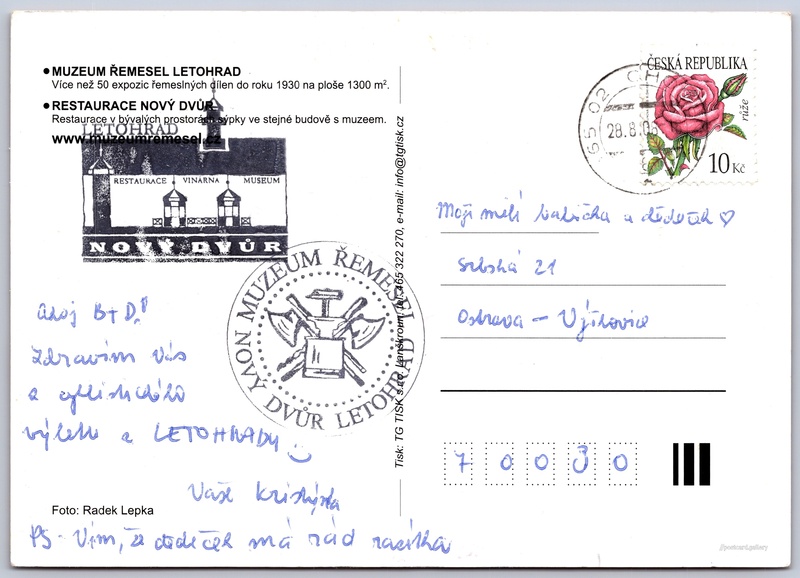 ● MUZEUM ŘEMESEL LETOHRAD
Více než 50 expozic řemeslných dílen do roku 1930 na ploše 1300 m².
● RESTAURACE NOVÝ DVŮR
Restaurace v bývalých prostorách sýpky ve stejné budově s muzeem.
www.muzeumremesel.cz
LETOHRAD
RESTAURACE VINÁRNA MUSEUM
NOVÝ DVŮR
MUZEUM ŘEMESEL
NOVÝ DVŮR LETOHRAD
Ahoj B+D!
Zdravím vás
z cyklistického
výletu z LETOHRADU
Vaše Kristýna
Foto: Radek Lepka
PS - Vím, že dědeček má rád razítka
Tisk: TG TISK s.r.o. Lanškroun, tel. 465 322 270, e-mail: info@tgtisk.cz
ČESKÁ REPUBLIKA
růže
10 Kč
65 02
28.8.
Moji milí babička a dědeček ♡
Srbská 21
Ostrava - Výškovice
7 0 0 3 0